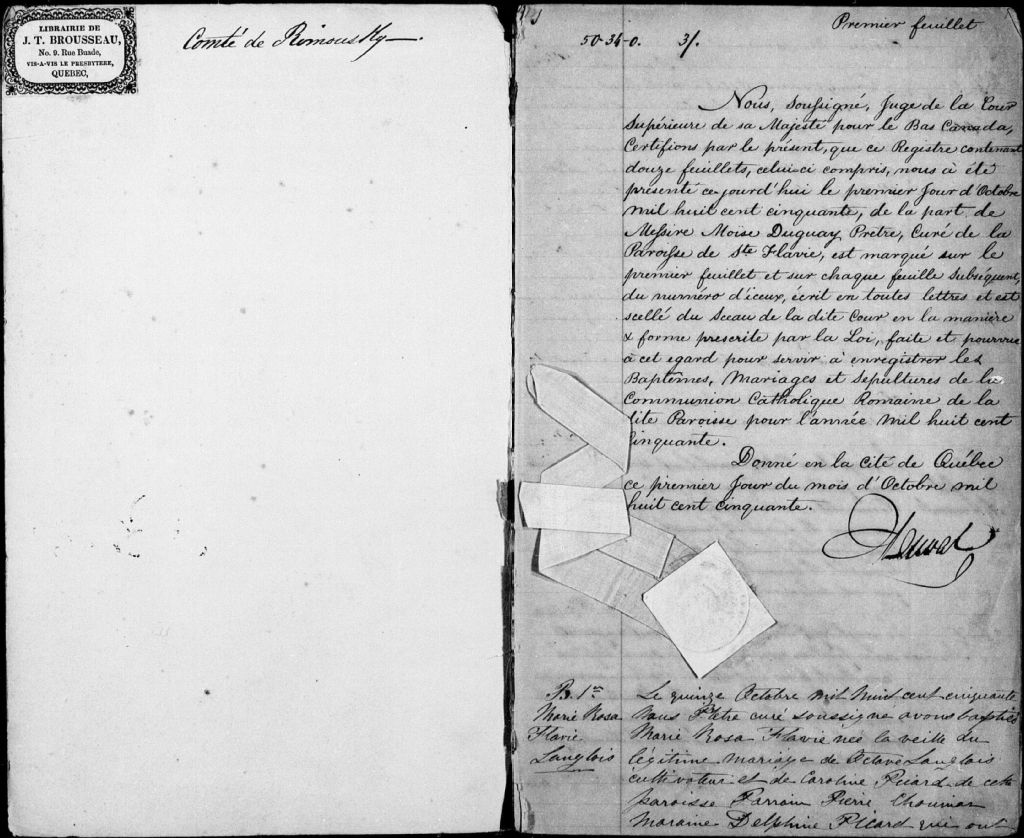 LIBRAIRIE DE
J. T. BROUSSEAU,
No. 9. Rue Buade,
VIS-A-VIS LE PRESBYTERE,
QUEBEC,
Comté de Rimousky
Premier feuillet
50-34-0. 3/.
Nous, Soussigné, Juge de la Cour
Supérieure de sa Majesté pour le Bas Canada,
Certifions par le présent, que ce Registre contenant
douze feuillets, celui-ci compris, nous à été
présenté ce jourd'hui le premier Jour d'Octobre
mil huit cent cinquante, de la part de
Messire Moïse Duguay Prêtre, Curé de la
Paroisse de Ste Flavie, est marqué sur le
premier feuillet et sur chaque feuille subséquent,
du numéro d'iceux, écrit en toutes lettres et est
scellé du Sceau de la dite Cour en la manière
& forme prescrite par la Loi, faite et pourvue
à cet egard pour servir à enregistrer les
Baptêmes, Mariages et Sépultures de la
Communion Catholique Romaine de la
dite Paroisse pour l'année mil huit cent
cinquante.
Donné en la Cité de Québec
ce premier Jour du mois d'Octobre mil
huit cent cinquante.
B. 1er
Marie Rosa
Flavie
Langlois
Le quinze Octobre mil huit cent cinquante
Nous Prêtre curé soussigné avons baptisé
Marie Rosa Flavie née la veille du
légitime mariage de Octave Langlois
cultivateur et de Caroline Picard de cette
paroisse Parrain Pierre Chouinar
Maraine Delphine Picard qui ont